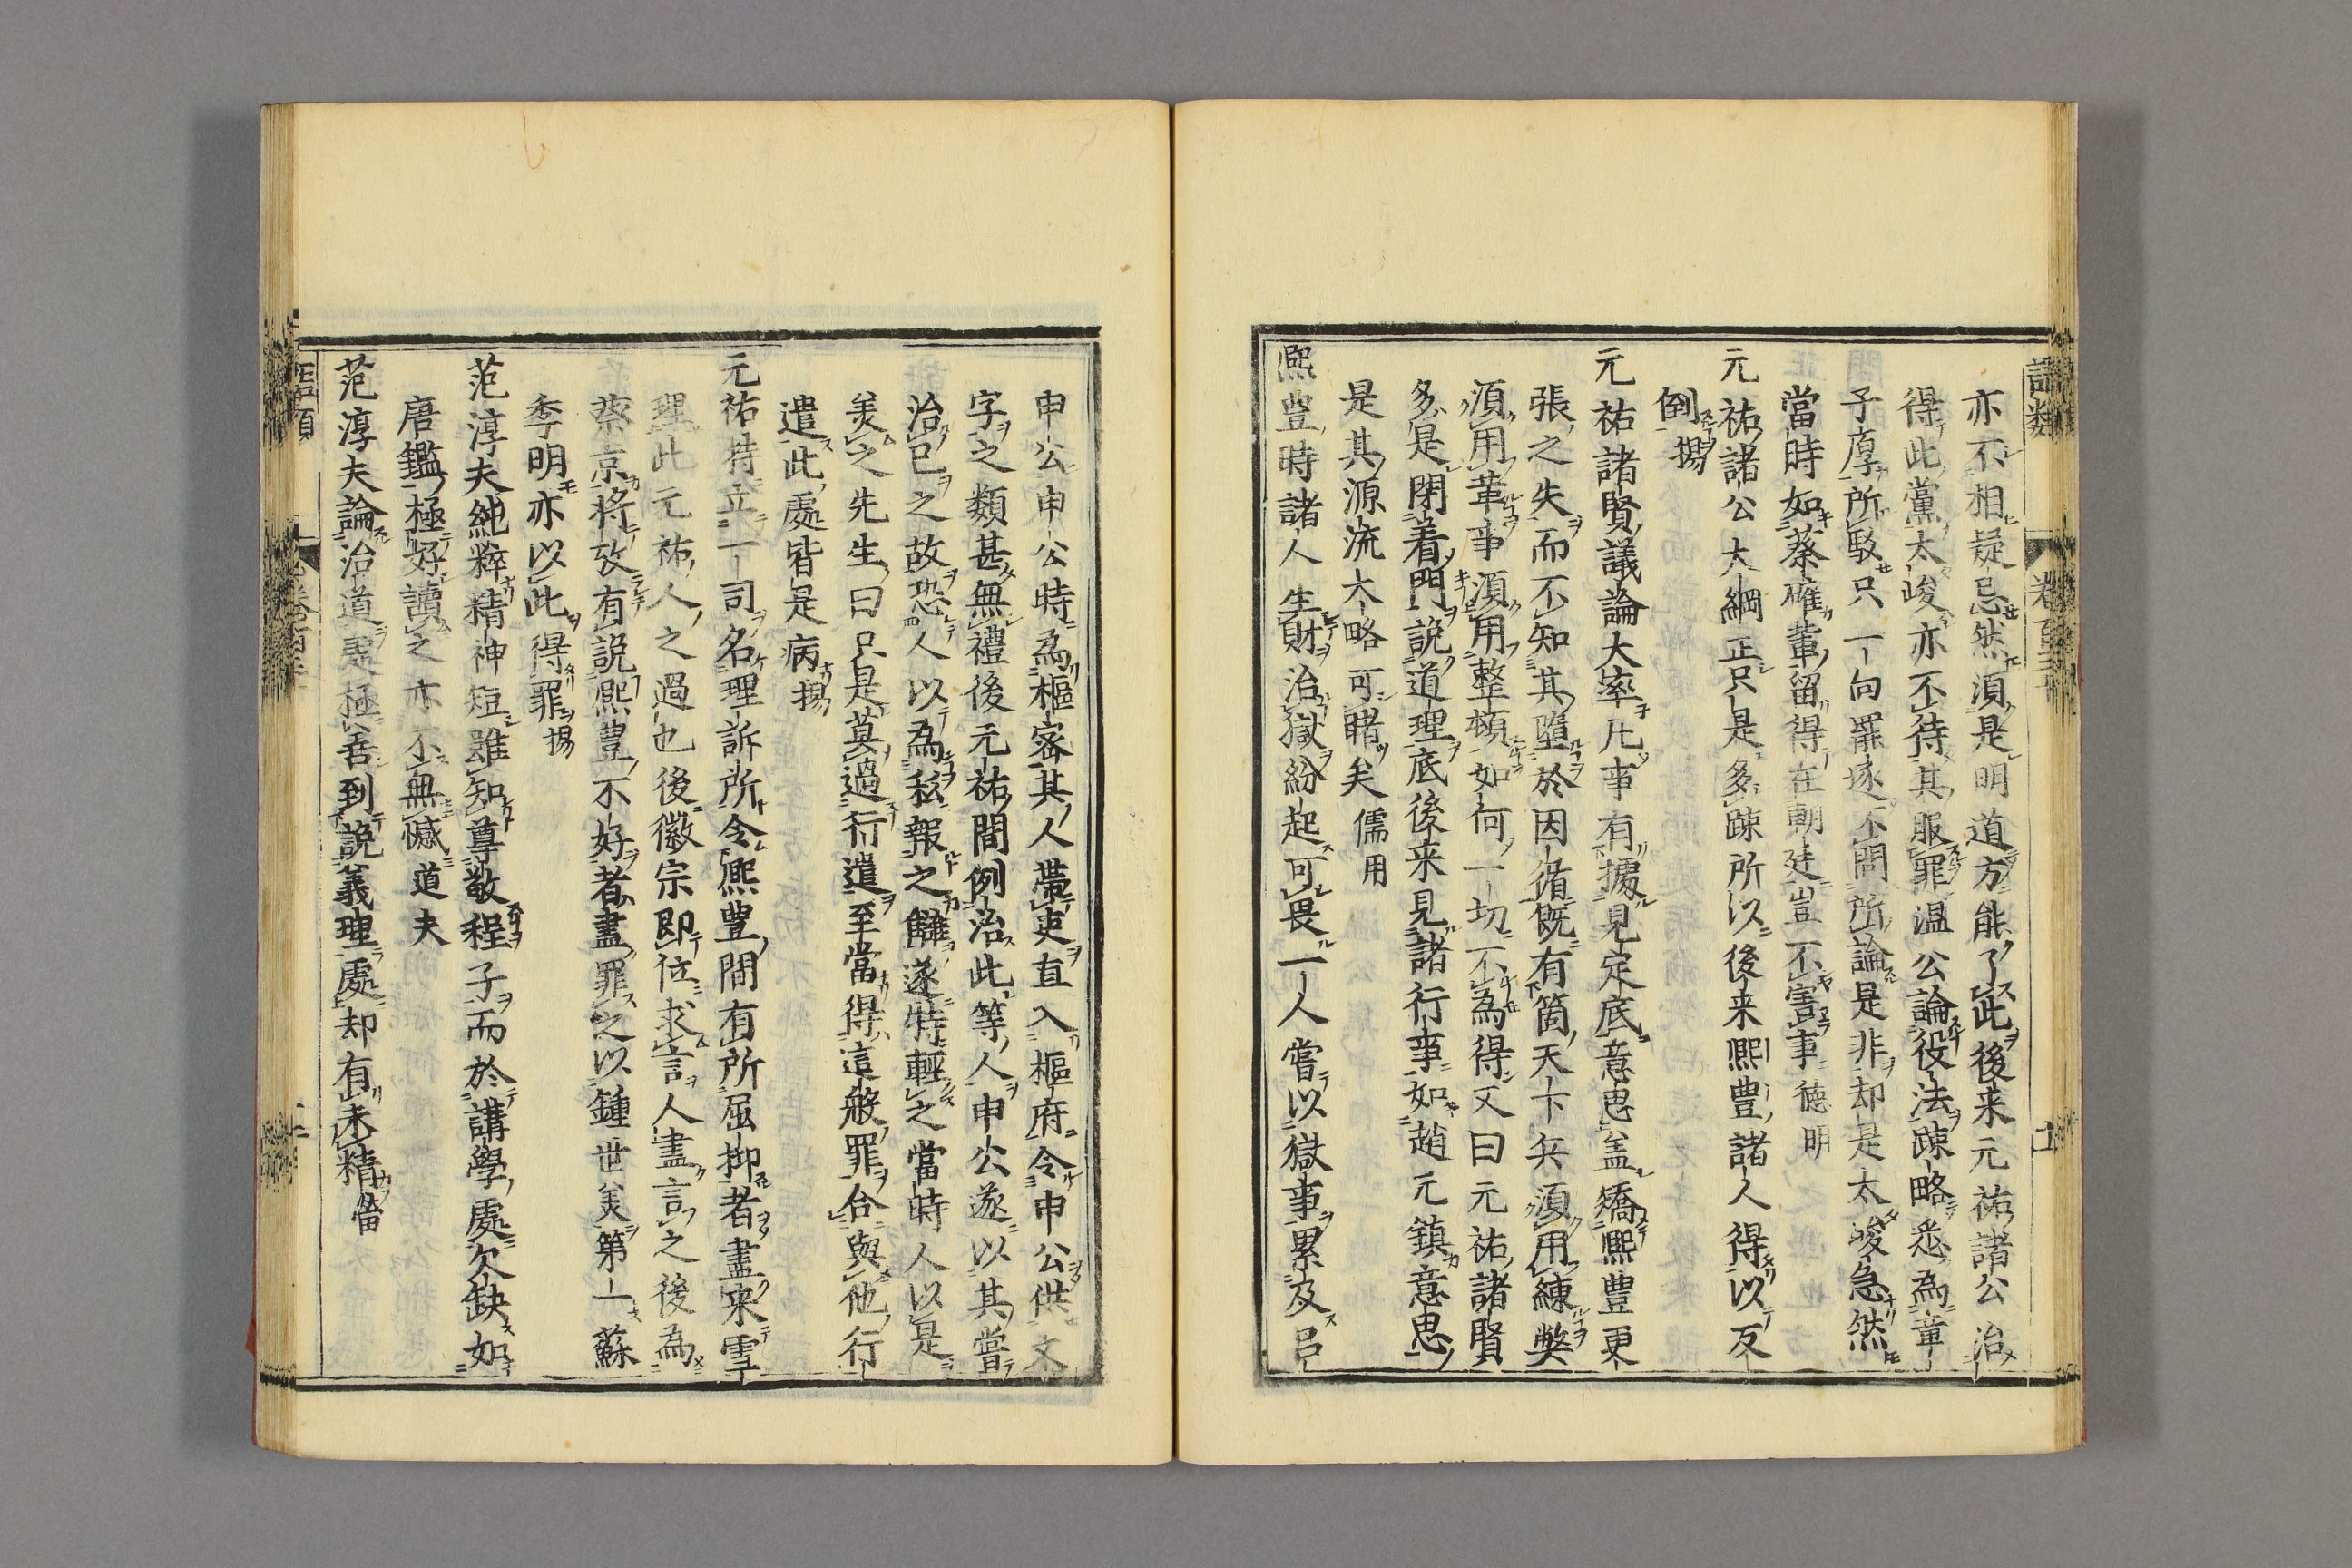 語類
卷百三十
十一
亦不相疑忌然須是明道方能了此後来元祐諸公治
得此黨太峻亦不待其服罪温公論役法疎略悉為章
子厚所駁只一向罷逐不問所論是非却是太峻急然
當時如蔡確輩留得在朝廷豈不害事 德明
元祐諸公大綱正只是多疎所以後来熙豊諸人得以反
倒 揚
元祐諸賢議論大率凡事有據見定底意思盖矯熙豊更
張之失而不知其墮於因循既有箇天下兵須用練弊
須用革事須用整頓如何一切不為得又曰元祐諸賢
多是閉着門說道理底後来見諸行事如趙元鎮意思
是其源流大略可睹矣 儒用
熙豊時諸人生財治獄紛起可畏一人嘗以獄事累及吕
申公申公時為樞密其人帶吏直入樞府令申公供文
字之類甚無禮後元祐間例治此等人申公遂以其嘗
治己之故恐人以為私報之讎遂特輕之當時人以是
美之先生曰只是莫過行遣至當得這般罪合與他行
遣此處皆是病 揚
元祐特立一司名理訴所令熙豊間有所屈抑者盡来雪
理此元祐人之過也後徽宗即位求言人盡言之後為
蔡京将攷有說熙豊不好者盡罪之以鍾世美第一蘇
季明亦以此得罪 揚
范淳夫純粹精神短雖知尊敬程子而於講學處欠缺如
唐鑑極好讀之亦不無憾 道夫
范淳夫論治道處極善到說義理處却有未精 㽦
語類